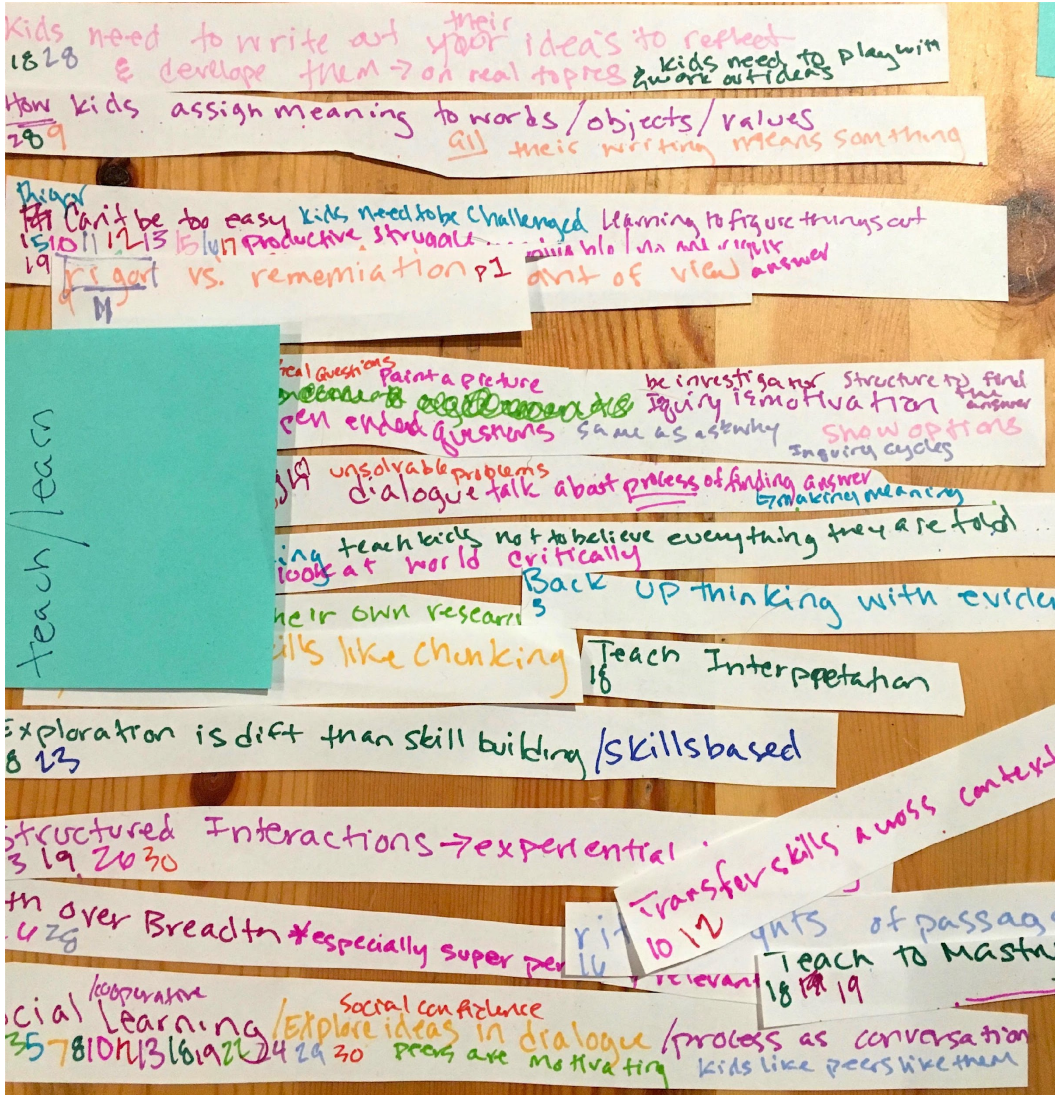 Kids need to write out your their ideas to reflect
18 28 & develope them → on real topics & kids need to play with
& work out ideas
How kids assign meaning to words/objects/values
28 9 all their writing means somthing
Rigor
Can't be too easy kids need to be challenged Learning to figure things out
15 10 11 12 13 15 17 productive struggle
19 answer
rigor vs. rememiation p1 of view
teach/learn
real Questions paint a picture be investigator structure to find the answer
Iquiry is motivation
open ended questions same as ask why show options
Inquiry cycles
unsolvable problems
dialogue talk about process of finding answer
↳ making meaning
ing teach kids not to believe everything they are told
look at world critically
Back up thinking with evide
5
their own research
ills like chunking
Teach Interppetation
18
Exploration is dift than skill building /skills based
8 23
Structured Interactions → experiential
3 19 26 30
Transfer skills across context
10 12
th over Breadth *especially super per
4 28
rit ghts of passag
16
relevant
Teach to Mastr
18 19
/cooperative
ocial Learning /Explore ideas in dialogue /process as conversation
Social confidence
35 7 8 10 12 13 18 19 22 24 29 30 peers are motivating kids like peers like them